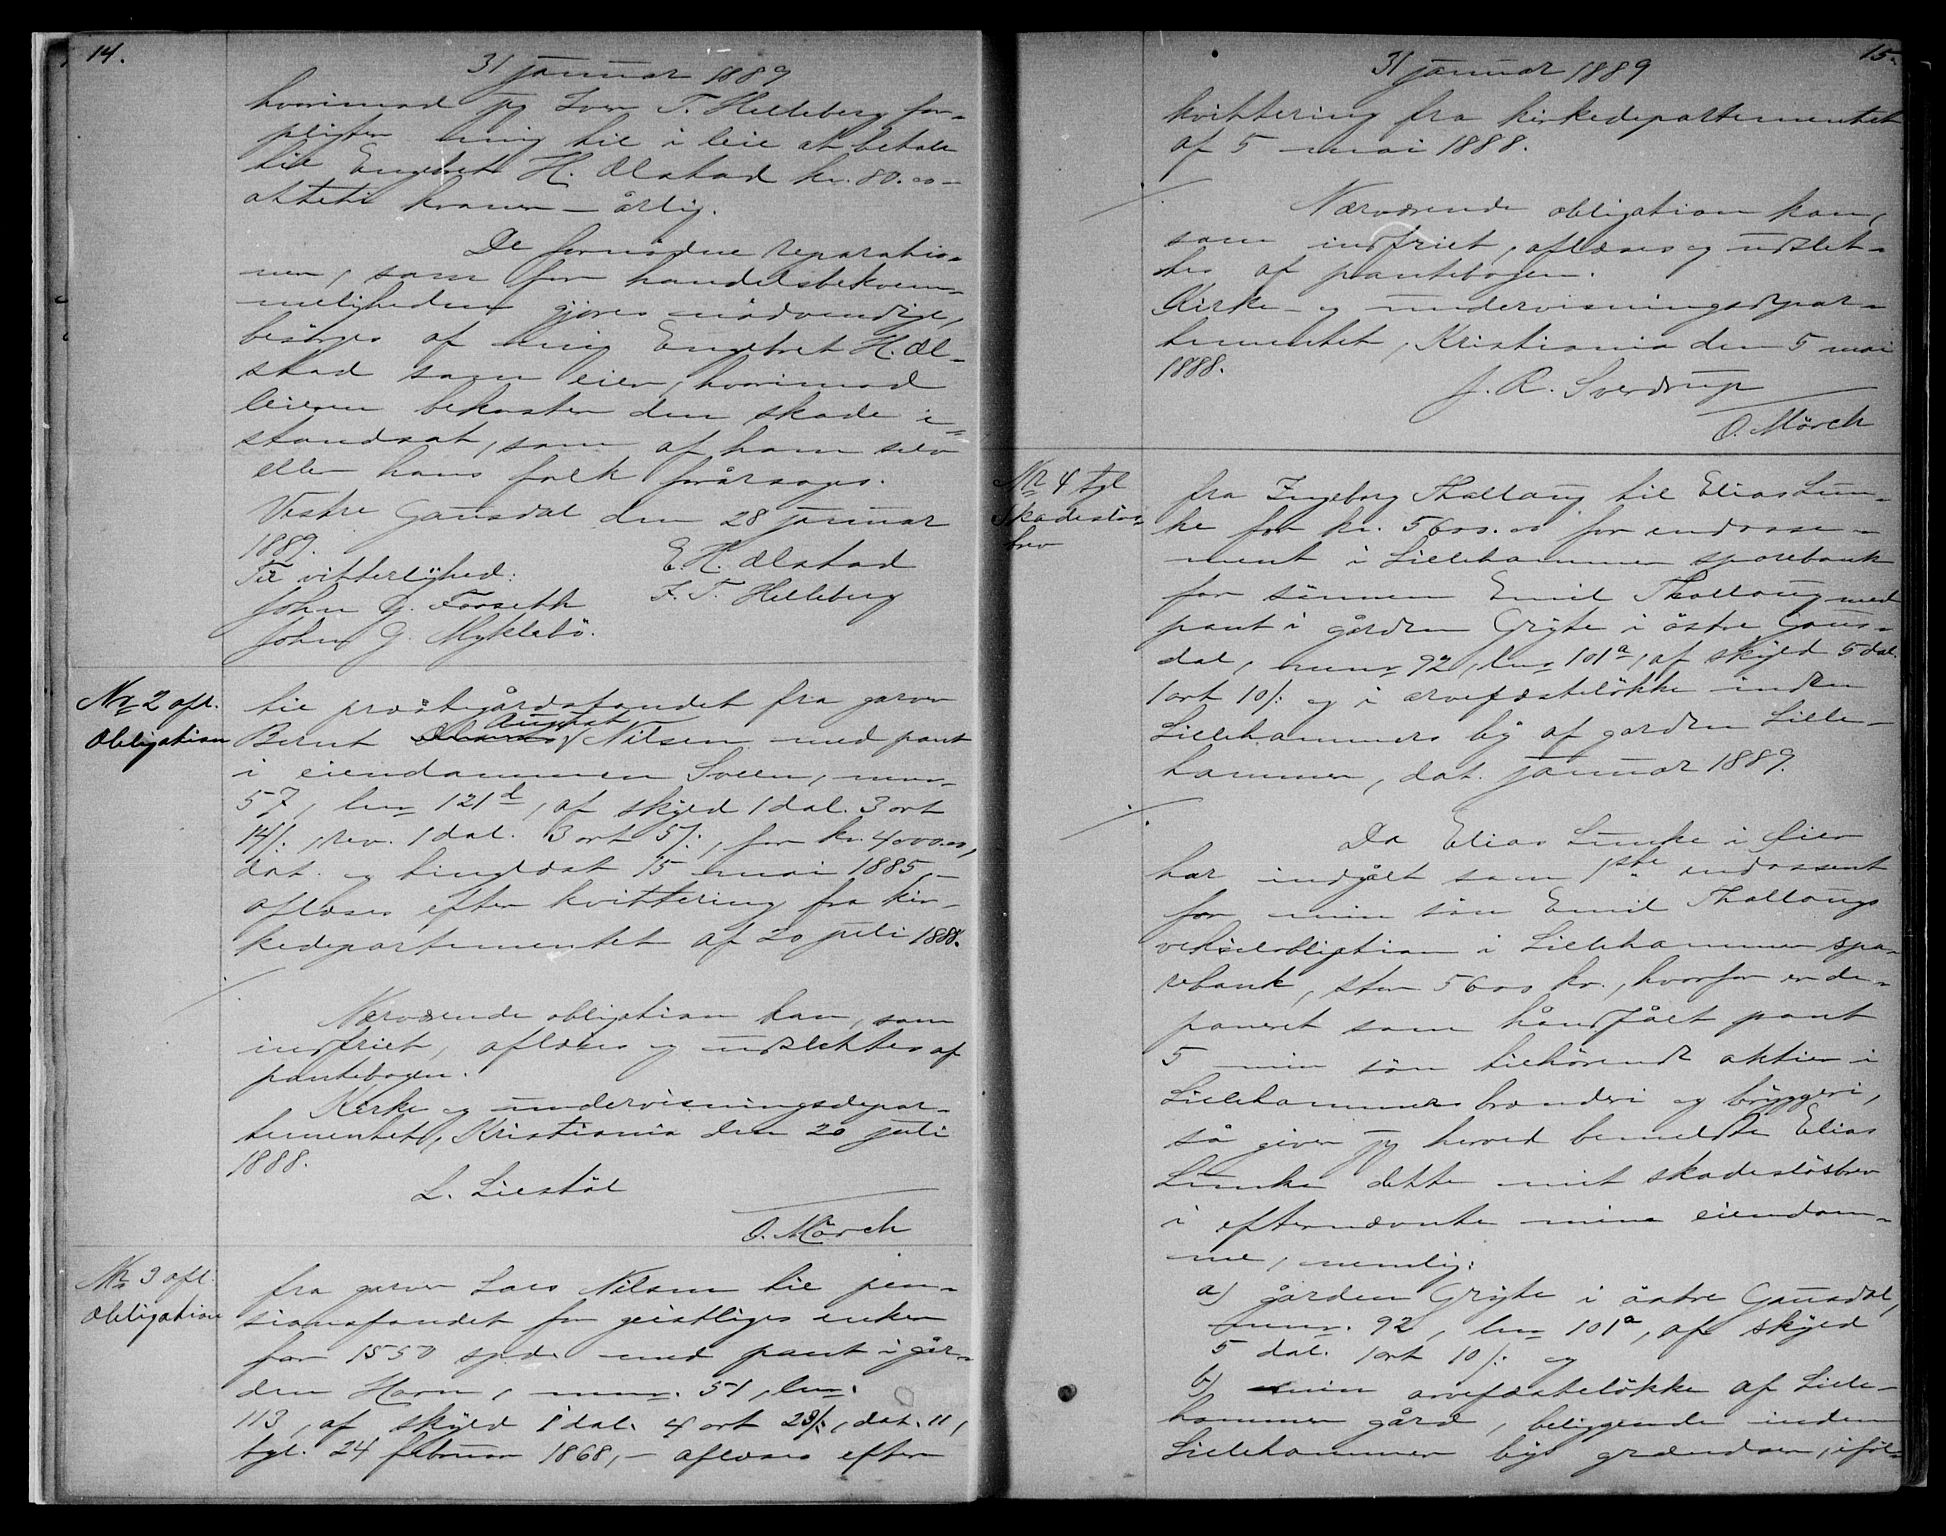 14.
31 januar 1889
hvorimod jeg Iver T. Helleberg for-
pligter mig til i leie at betale
til Engebret H. Ølstad kr. 80.00 -
otteti kroner - årlig.
De fornødne reparatio-
ner, som for handelsbekvem-
meligheden gjøres nødvendige,
besörges af mig Engebret H. Øl-
stad som eier, hvorimod
leieren bekoster den skade i-
standsat, som af ham selv
eller hans folk forårsages.
Vestre Gausdal den 28 januar
1889.
Til vitterlighed: E. H. Ølstad
John G. Forseth I. T. Helleberg
John G. Myklebö.
No 2 afl.
Obligation
til præstegårdsfondet fra garver
August
Bernt Nilsen med pant
i eiendommen Sveen, mnr
57, lnr 121d, af skyld 1 dal. 3 ort
14 /:, rev. 1 dal. 3 ort 5 /:, for kr. 4000.00,
dat. og tinglæst 15 mai 1885, -
aflæses efter kvittering fra kir-
kedepartementet af 20 juli 1888.
Nærværende obligation kan, som
indfriet, aflæses og udslettes af
pantebogen.
Kirke og undervisningsdepar-
tementet, Kristiania den 20 juli
1888.
L. Liestöl
O. Mörch
No 3 afl.
Obligation
fra garver Lars Nilsen til pen-
sionsfondet for geistliges enker
for 1550 spd. med pant i går-
den Horn, mnr. 51, lnr.
113, af skyld 1 dal. 4 ort 23 /:, dat. 11,
tgl. 24 februar 1868, - aflæses efter
15.
31 januar 1889
kvittering fra kirkedepartementet
af 5 mai 1888.
Nærværende obligation kan,
som indfriet, aflæses og udslet-
tes af pantebogen.
Kirke- og undervisningsdepar-
tementet, Kristiania den 5 mai
1888.
J. R. Sverdrup
O. Mörch
No 4 tgl
Skadeslös-
brev
fra Ingeborg Thallaug til Elias Lun-
ke for kr. 5600.00 for endosse-
ment i Lillehammer sparebank
for sönnen Emil Thallaug med
pant i gården Gryte i östre Gaus-
dal, mnr 92, lnr 101a, af skyld 5 dal.
1 ort 10 /: og i arvefæstelökke inden
Lillehammers by af gården Lille-
hammer, dat. januar 1889.
Da Elias Lunke i Øier
har indgået som 1ste endossent
for min sön Emil Thallaugs
vekselobligation i Lillehammer spa-
rebank, stor 5600 kr., hvorfor er de-
poneret som håndfået pant
5 min sön tilhörende aktier i
Lillehammers brænderi og bryggeri,
så giver jeg herved bemeldte Elias
Lunke dette mit skadeslösbrev
i efternævnte mine eiendom-
me, nemlig:
a) gården Gryte i östre Gausdal,
mnr. 92, lnr 101a, af skyld
5 dal. 1 ort 10 /: og
b) min arvefæstelökke af Lille-
hammer gård, beliggende inden
Lillehammer bys grændser, iföl-